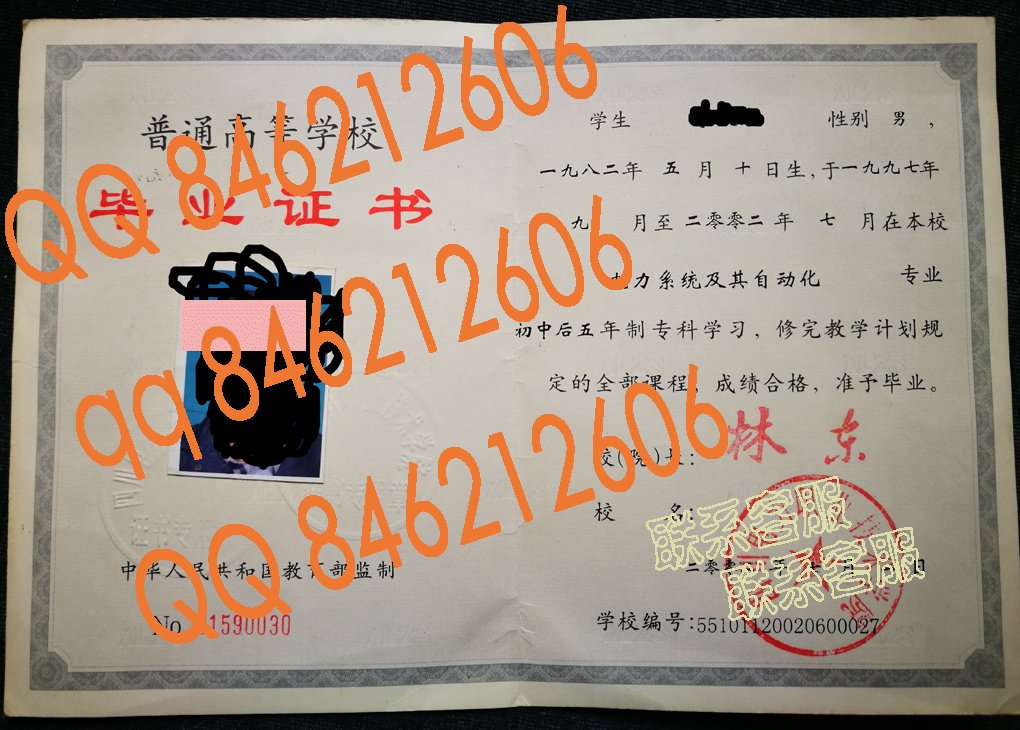 普通高等学校
毕业证书
中华人民共和国教育部监制
No. 1590030
学生 性别 男,
一九八二年 五 月 十 日生,于一九九七年
九 月至 二零零二 年 七 月在本校
力系统及其自动化 专业
初中后五年制专科学习,修完教学计划规
定的全部课程,成绩合格,准予毕业。
校(院)长: 林东
校 名:
二零零
学校编号:55101120020600027
QQ 846212606
qq 846212606
QQ 846212606
联系客服
联系客服